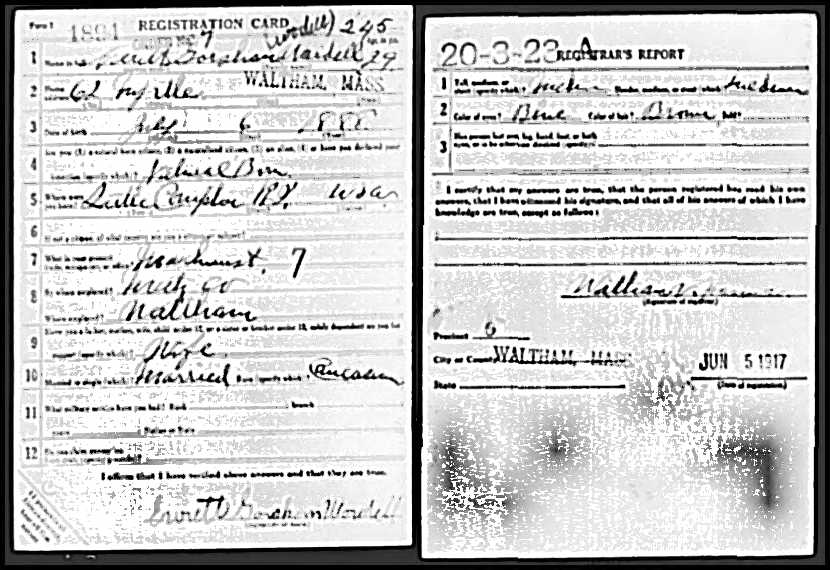 Form 1 1894 REGISTRATION CARD (Wordell) 245
ORDER NO 7
1 Name in full Everett Gorsham Wardell Age, in yrs. 29
2 Home address 62 Myrtle WALTHAM, MASS
3 Date of birth July 6 1888
Are you (1) a natural born citizen, (2) a naturalized citizen, (3) an alien, (4) or have you declared your
4 intention (specify which)? Natural Born
5 Where were you born? Little Compton R.I. USA
6 If not a citizen, of what country are you a citizen or subject?
7 What is your present trade, occupation, or office? Machinist, 7
8 By whom employed? Metz Co
Where employed? Waltham
Have you a father, mother, wife, child under 12, or a sister or brother under 12, solely dependent on you for
9 support (specify which)? Wife
10 Married or single (which)? Married Race (specify which)? Caucasian
11 What military service have you had? Rank branch
years Nation or State
12 Do you claim exemption from draft (specify grounds)?
I affirm that I have verified above answers and that they are true.
Everett Gorsham Wordell
20-3-23 A REGISTRAR'S REPORT
1 Tall, medium, or short (specify which)? Medium Slender, medium, or stout (which)? Medium
2 Color of eyes? Blue Color of hair? Brown Bald?
3 Has person lost arm, leg, hand, foot, or both
eyes, or is he otherwise disabled (specify)?
I certify that my answers are true, that the person registered has read his own
answers, that I have witnessed his signature, and that all of his answers of which I have
knowledge are true, except as follows:
(Signature of registrar)
Precinct 6
City or County WALTHAM, MASS JUN 5 1917
State (Date of registration)